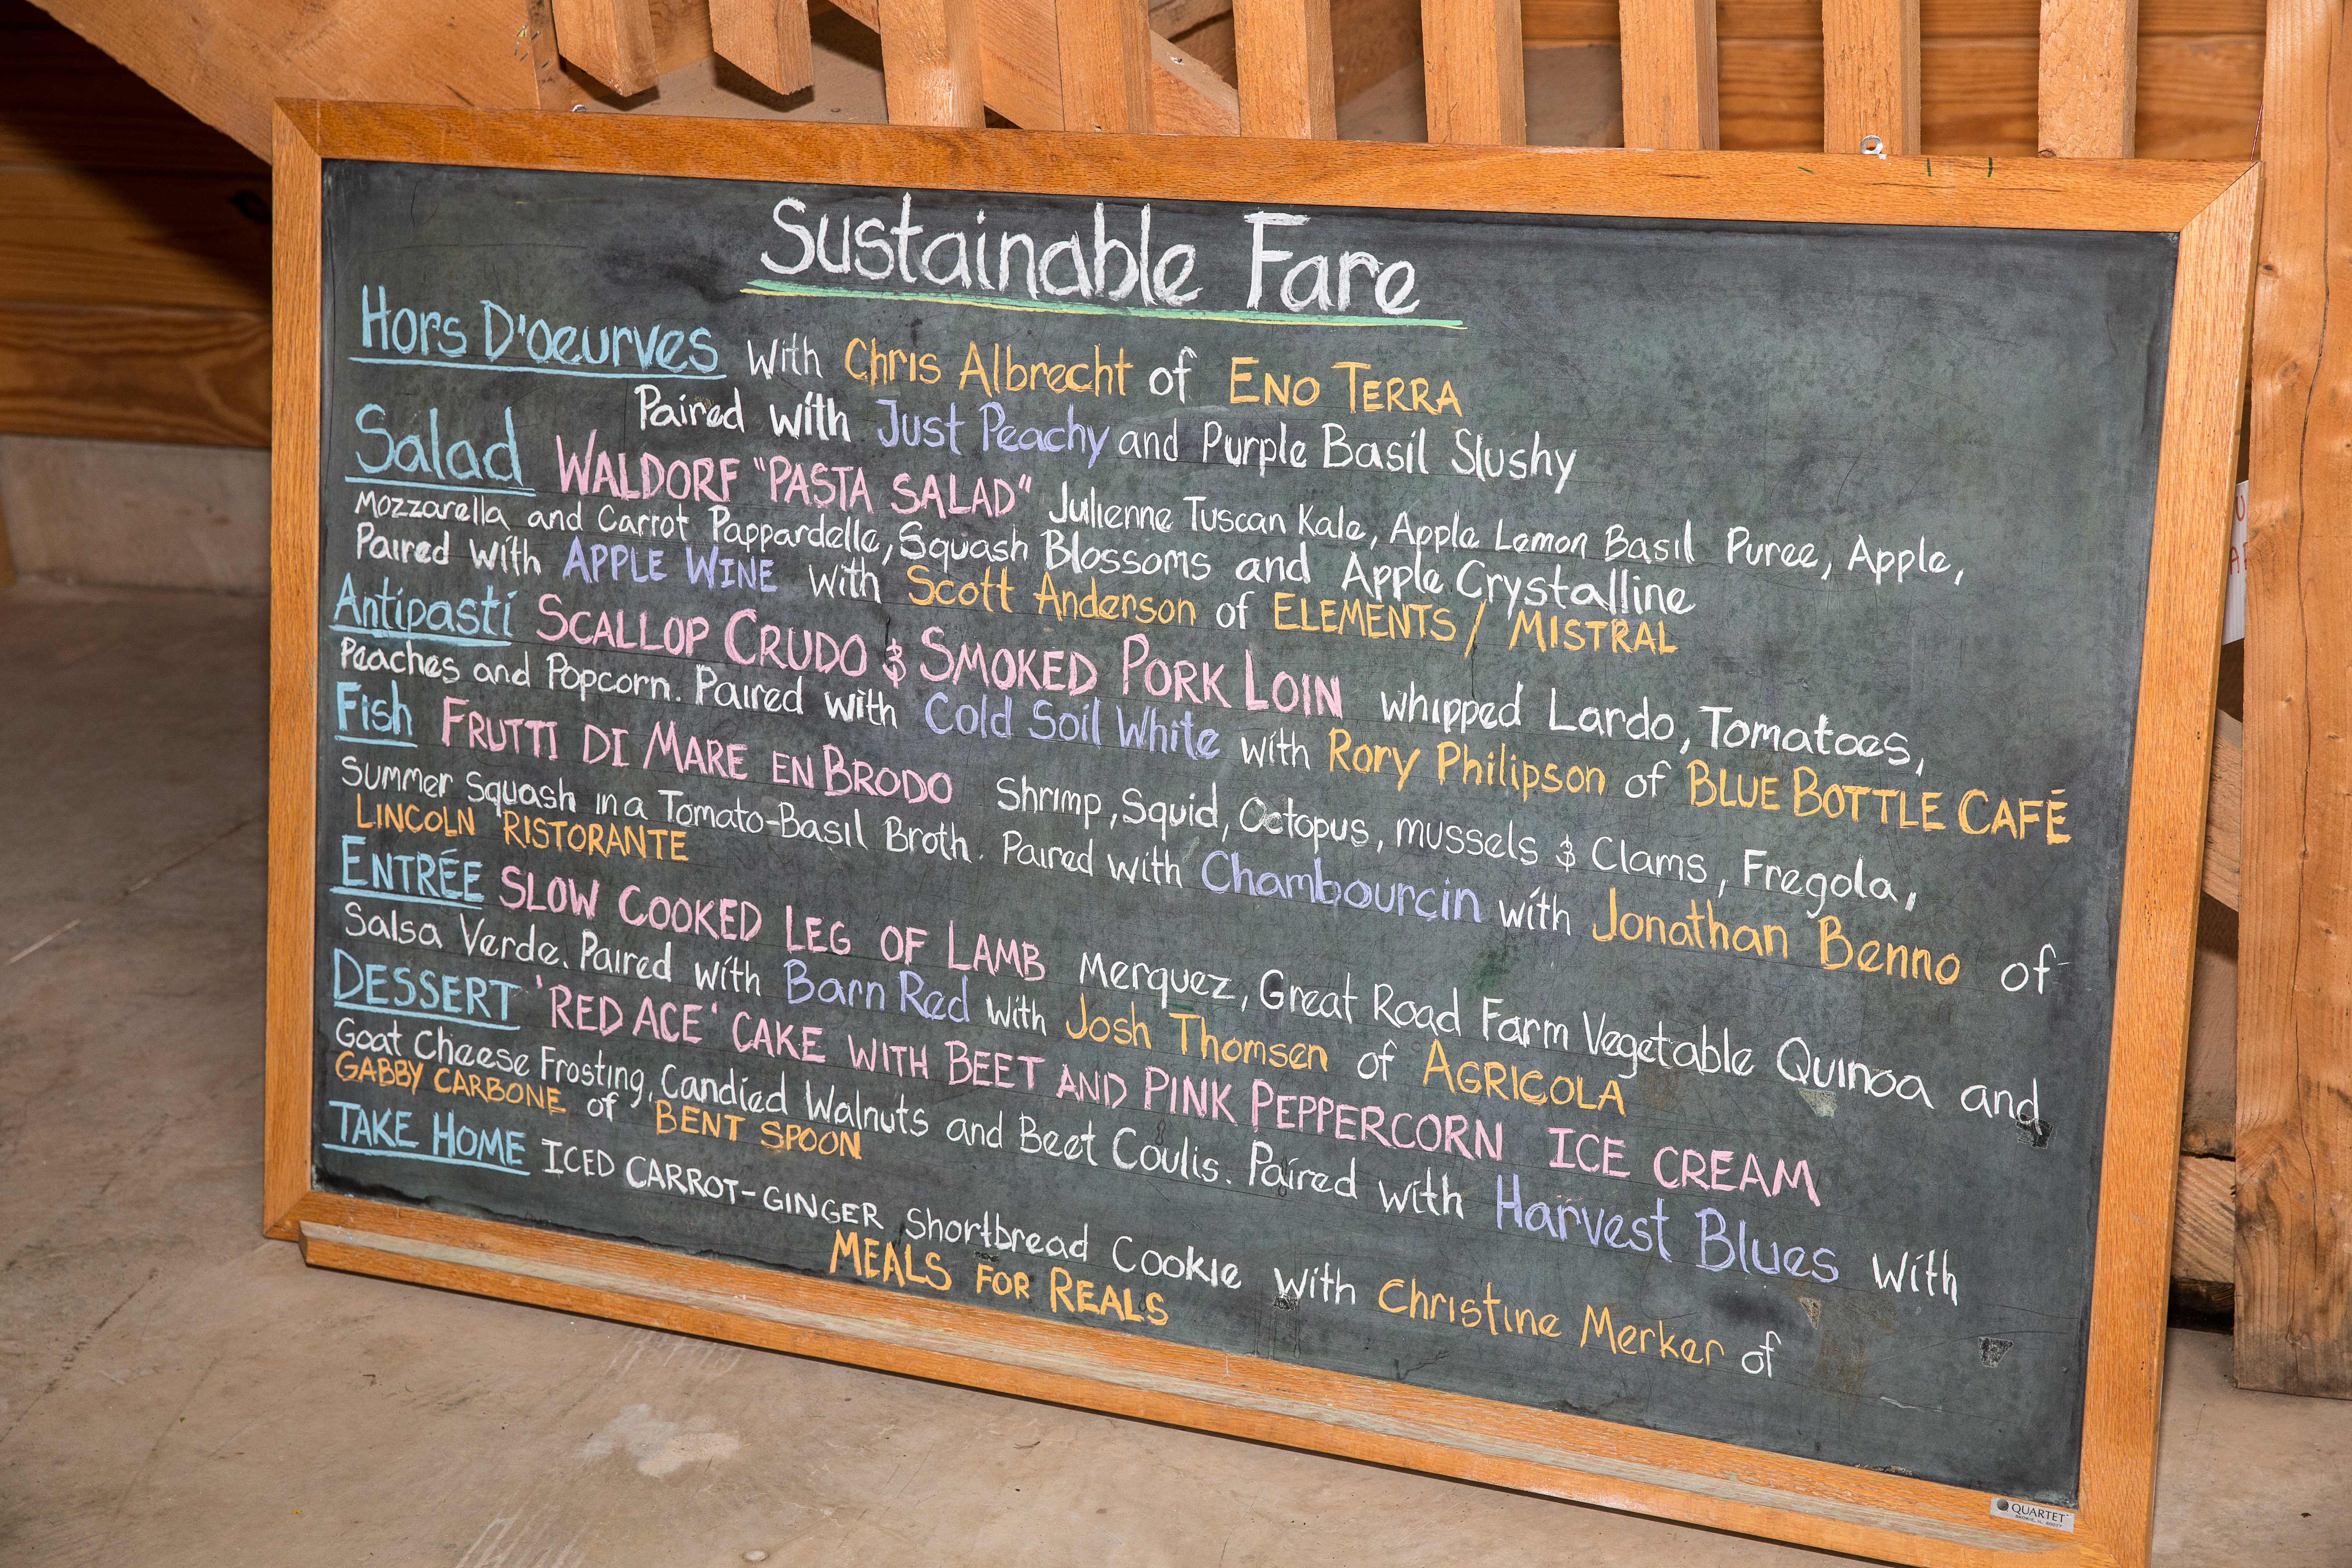 Sustainable Fare
Hors D'oeurves with Chris Albrecht of ENO TERRA
Paired with Just Peachy and Purple Basil Slushy
Salad WALDORF "PASTA SALAD" Julienne Tuscan Kale, Apple Lemon Basil Puree, Apple,
Mozzarella and Carrot Pappardelle, Squash Blossoms and Apple Crystalline
Paired with APPLE WINE with Scott Anderson of ELEMENTS / MISTRAL
Antipasti SCALLOP CRUDO & SMOKED PORK LOIN whipped Lardo, Tomatoes,
Peaches and Popcorn. Paired with Cold Soil White with Rory Philipson of BLUE BOTTLE CAFÉ
Fish FRUTTI DI MARE EN BRODO Shrimp, Squid, Octopus, mussels & Clams, Fregola,
Summer Squash in a Tomato-Basil Broth. Paired with Chambourcin with Jonathan Benno of
LINCOLN RISTORANTE
ENTRÉE SLOW COOKED LEG OF LAMB Merquez, Great Road Farm Vegetable Quinoa and
Salsa Verde. Paired with Barn Red with Josh Thomsen of AGRICOLA
DESSERT 'RED ACE' CAKE WITH BEET AND PINK PEPPERCORN ICE CREAM
Goat Cheese Frosting, Candied Walnuts and Beet Coulis. Paired with Harvest Blues with
GABBY CARBONE of BENT SPOON
TAKE HOME ICED CARROT-GINGER Shortbread Cookie with Christine Merker of
MEALS FOR REALS
QUARTET